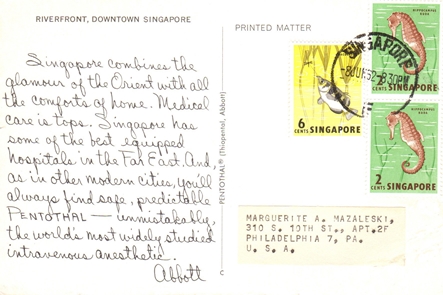 RIVERFRONT, DOWNTOWN SINGAPORE
Singapore combines the
glamour of the Orient with all
the comforts of home. Medical
care is tops. Singapore has
some of the best equipped
hospitals in the Far East. And,
as in other modern cities, you'll
always find safe, predictable
PENTOTHAL — unmistakably,
the world's most widely studied
intravenous anesthetic.
Abbott
PENTOTHAL® (Thiopental, Abbott)
PRINTED MATTER
SINGAPORE
6 CENTS SINGAPORE
HIPPOCAMPUS KUDA
CENTS SINGAPORE
HIPPOCAMPUS KUDA
2 CENTS SINGAPORE
MARGUERITE A. MAZALESKI,
310 S. 10TH ST., APT.2F
PHILADELPHIA 7, PA.
U. S. A.